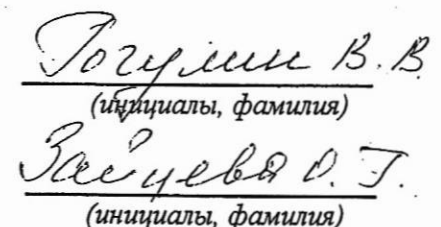 Рогулин В. В.
(инициалы, фамилия)
Зайцева О. Г.
(инициалы, фамилия)